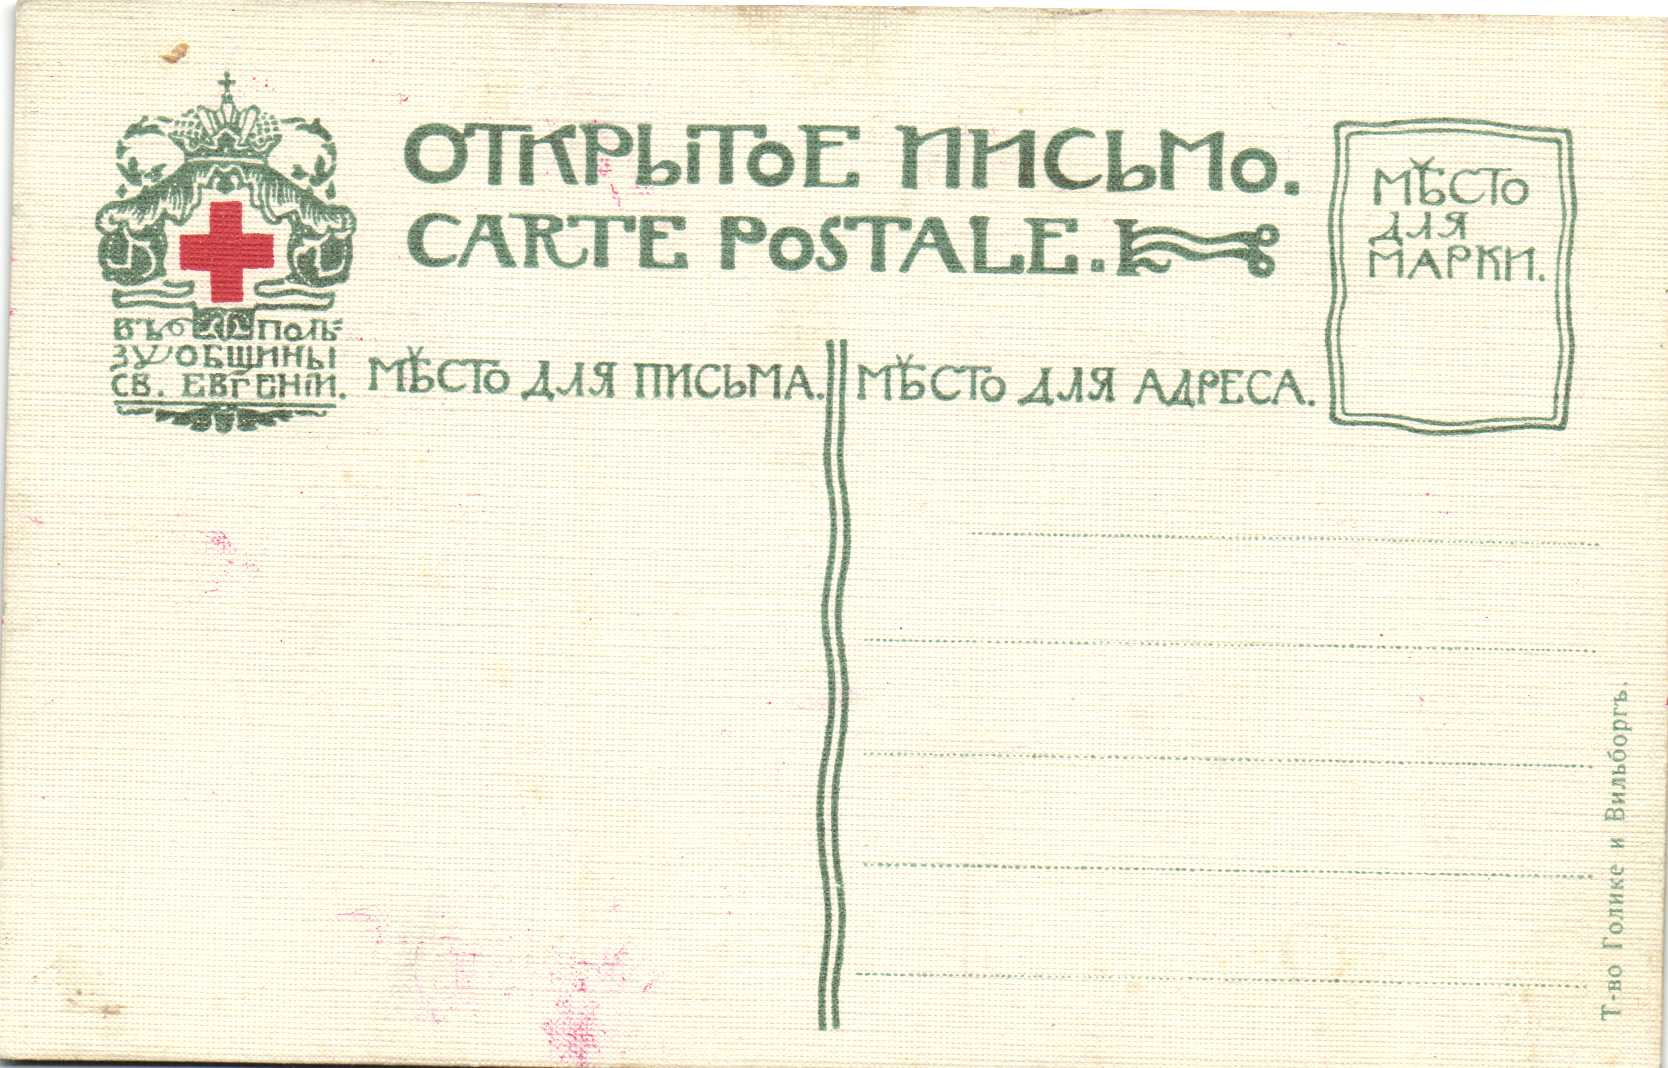 ОТКРЫТОЕ ПИСЬМО.
CARTE POSTALE.
МѢСТО
ДЛЯ
МАРКИ.
ВЪ ПОЛЬ-
ЗУ ОБЩИНЫ
СВ. ЕВГЕНІИ.
МѢСТО ДЛЯ ПИСЬМА.
МѢСТО ДЛЯ АДРЕСА.
Т-во Голике и Вильборгъ.